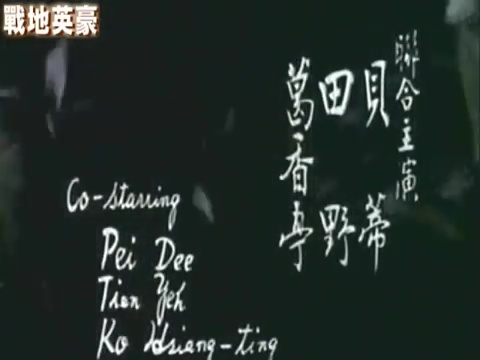 戰地英豪
聯合主演
貝蒂
田野
葛香亭
Co-starring
Pei Dee
Tien Yeh
Ko Hsiang-ting